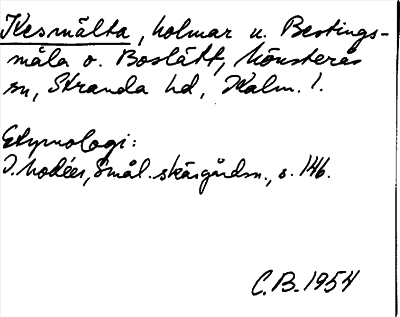 Kesmälta, holmar u. Bestings-
måla o. Boslätt, Mönsterås
sn, Stranda hd, Kalm. l.
Etymologi:
I. Modéer, Smål. skärgårdsn., s. 146.
C. B. 1954